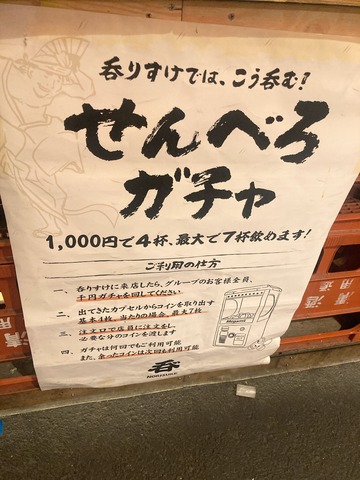 呑りすけでは、こう呑む!
せんべろ
ガチャ
1,000円で4杯、最大で7杯飲めます!
ご利用の仕方
一、呑りすけに来店したら、グループのお客様全員、
千円ガチャを回してください
二、出てきたカプセルからコインを取り出す
基本4枚、当たりの場合、最大7枚
三、注文口で店員に注文をし、
必要な分のコインを渡します
四、ガチャは何回でもご利用可能
また、余ったコインは次回も利用可能
呑
NORISUKE